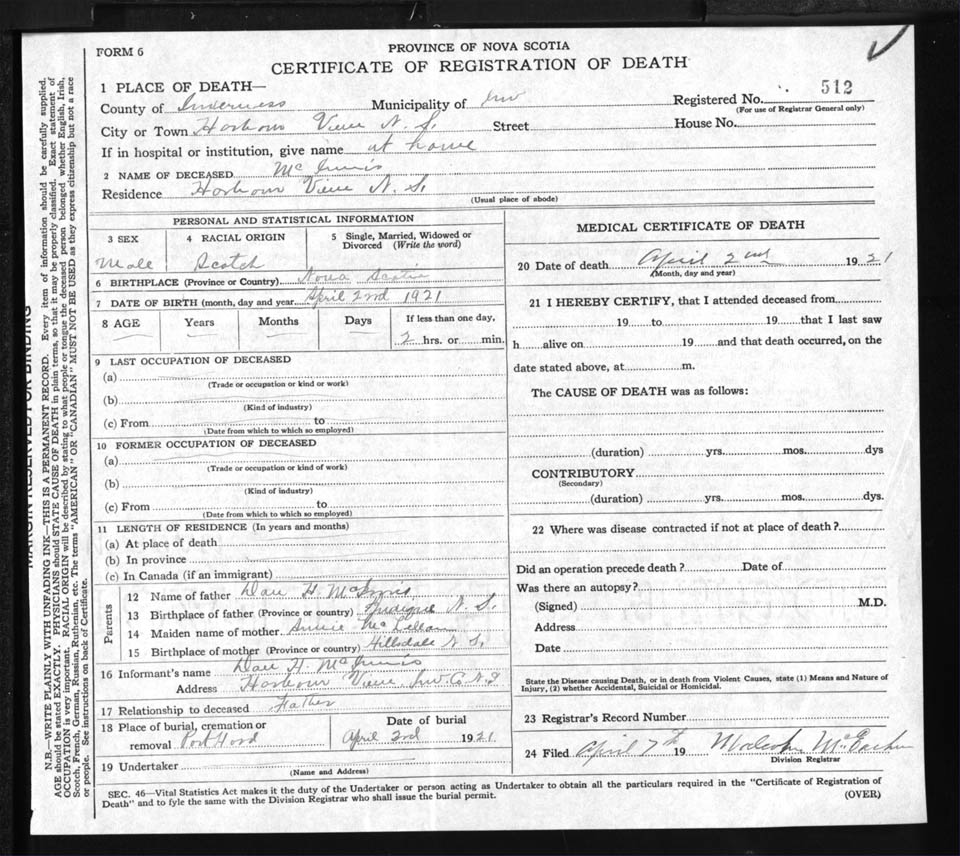 FORM 6
PROVINCE OF NOVA SCOTIA
CERTIFICATE OF REGISTRATION OF DEATH
1 PLACE OF DEATH—
County of Inverness Municipality of Inv Registered No. 512
(For use of Registrar General only)
City or Town Harbour View N. S. Street House No.
If in hospital or institution, give name at home
2 NAME OF DECEASED McInnis
Residence Harbour View N. S.
(Usual place of abode)
PERSONAL AND STATISTICAL INFORMATION
3 SEX 4 RACIAL ORIGIN 5 Single, Married, Widowed or Divorced (Write the word)
Male Scotch
6 BIRTHPLACE (Province or Country) Nova Scotia
7 DATE OF BIRTH (month, day and year) April 2nd 1921
8 AGE Years Months Days If less than one day,
2 hrs. or min.
9 LAST OCCUPATION OF DECEASED
(a)
(Trade or occupation or kind or work)
(b)
(Kind of industry)
(c) From to
(Date from which to which so employed)
10 FORMER OCCUPATION OF DECEASED
(a)
(Trade or occupation or kind of work)
(b)
(Kind of industry)
(c) From to
(Date from which to which so employed)
11 LENGTH OF RESIDENCE (In years and months)
(a) At place of death
(b) In province
(c) In Canada (if an immigrant)
Parents
12 Name of father Dan H. McInnis
13 Birthplace of father (Province or country) N. S.
14 Maiden name of mother Annie McLellan
15 Birthplace of mother (Province or country) Hillsdale N. S.
16 Informant's name Dan H. McInnis
Address Harbour View Inv. Co. N S
17 Relationship to deceased Father
18 Place of burial, cremation or Date of burial
removal Port Hood April 3rd 1921
19 Undertaker
(Name and Address)
MEDICAL CERTIFICATE OF DEATH
20 Date of death April 2nd 1921
(Month, day and year)
21 I HEREBY CERTIFY, that I attended deceased from
19 to 19 that I last saw
h alive on 19 and that death occurred, on the
date stated above, at m.
The CAUSE OF DEATH was as follows:
(duration) yrs. mos. dys
CONTRIBUTORY
(Secondary)
(duration) yrs. mos. dys.
22 Where was disease contracted if not at place of death?
Did an operation precede death? Date of
Was there an autopsy?
(Signed) M.D.
Address
Date
State the Disease causing Death, or in death from Violent Causes, state (1) Means and Nature of
Injury, (2) whether Accidental, Suicidal or Homicidal.
23 Registrar's Record Number
24 Filed April 7th 19 Malcolm McEachen
Division Registrar
SEC. 46—Vital Statistics Act makes it the duty of the Undertaker or person acting as Undertaker to obtain all the particulars required in the "Certificate of Registration of
Death" and to fyle the same with the Division Registrar who shall issue the burial permit.
(OVER)
MARGIN RESERVED FOR BINDING
N.B.—WRITE PLAINLY WITH UNFADING INK—THIS IS A PERMANENT RECORD. Every item of information should be carefully supplied.
AGE should be stated EXACTLY. PHYSICIANS should STATE CAUSE OF DEATH in plain terms, so that it may be properly classified. Exact statement of
OCCUPATION is very important. RACIAL ORIGIN will be described by stating to what people or tongue the deceased person belonged whether English, Irish,
Scotch, French, German, Russian, Ruthenian, etc. The terms "AMERICAN" OR "CANADIAN" MUST NOT BE USED as they express citizenship but not a race
or people. See instructions on back of Certificate.